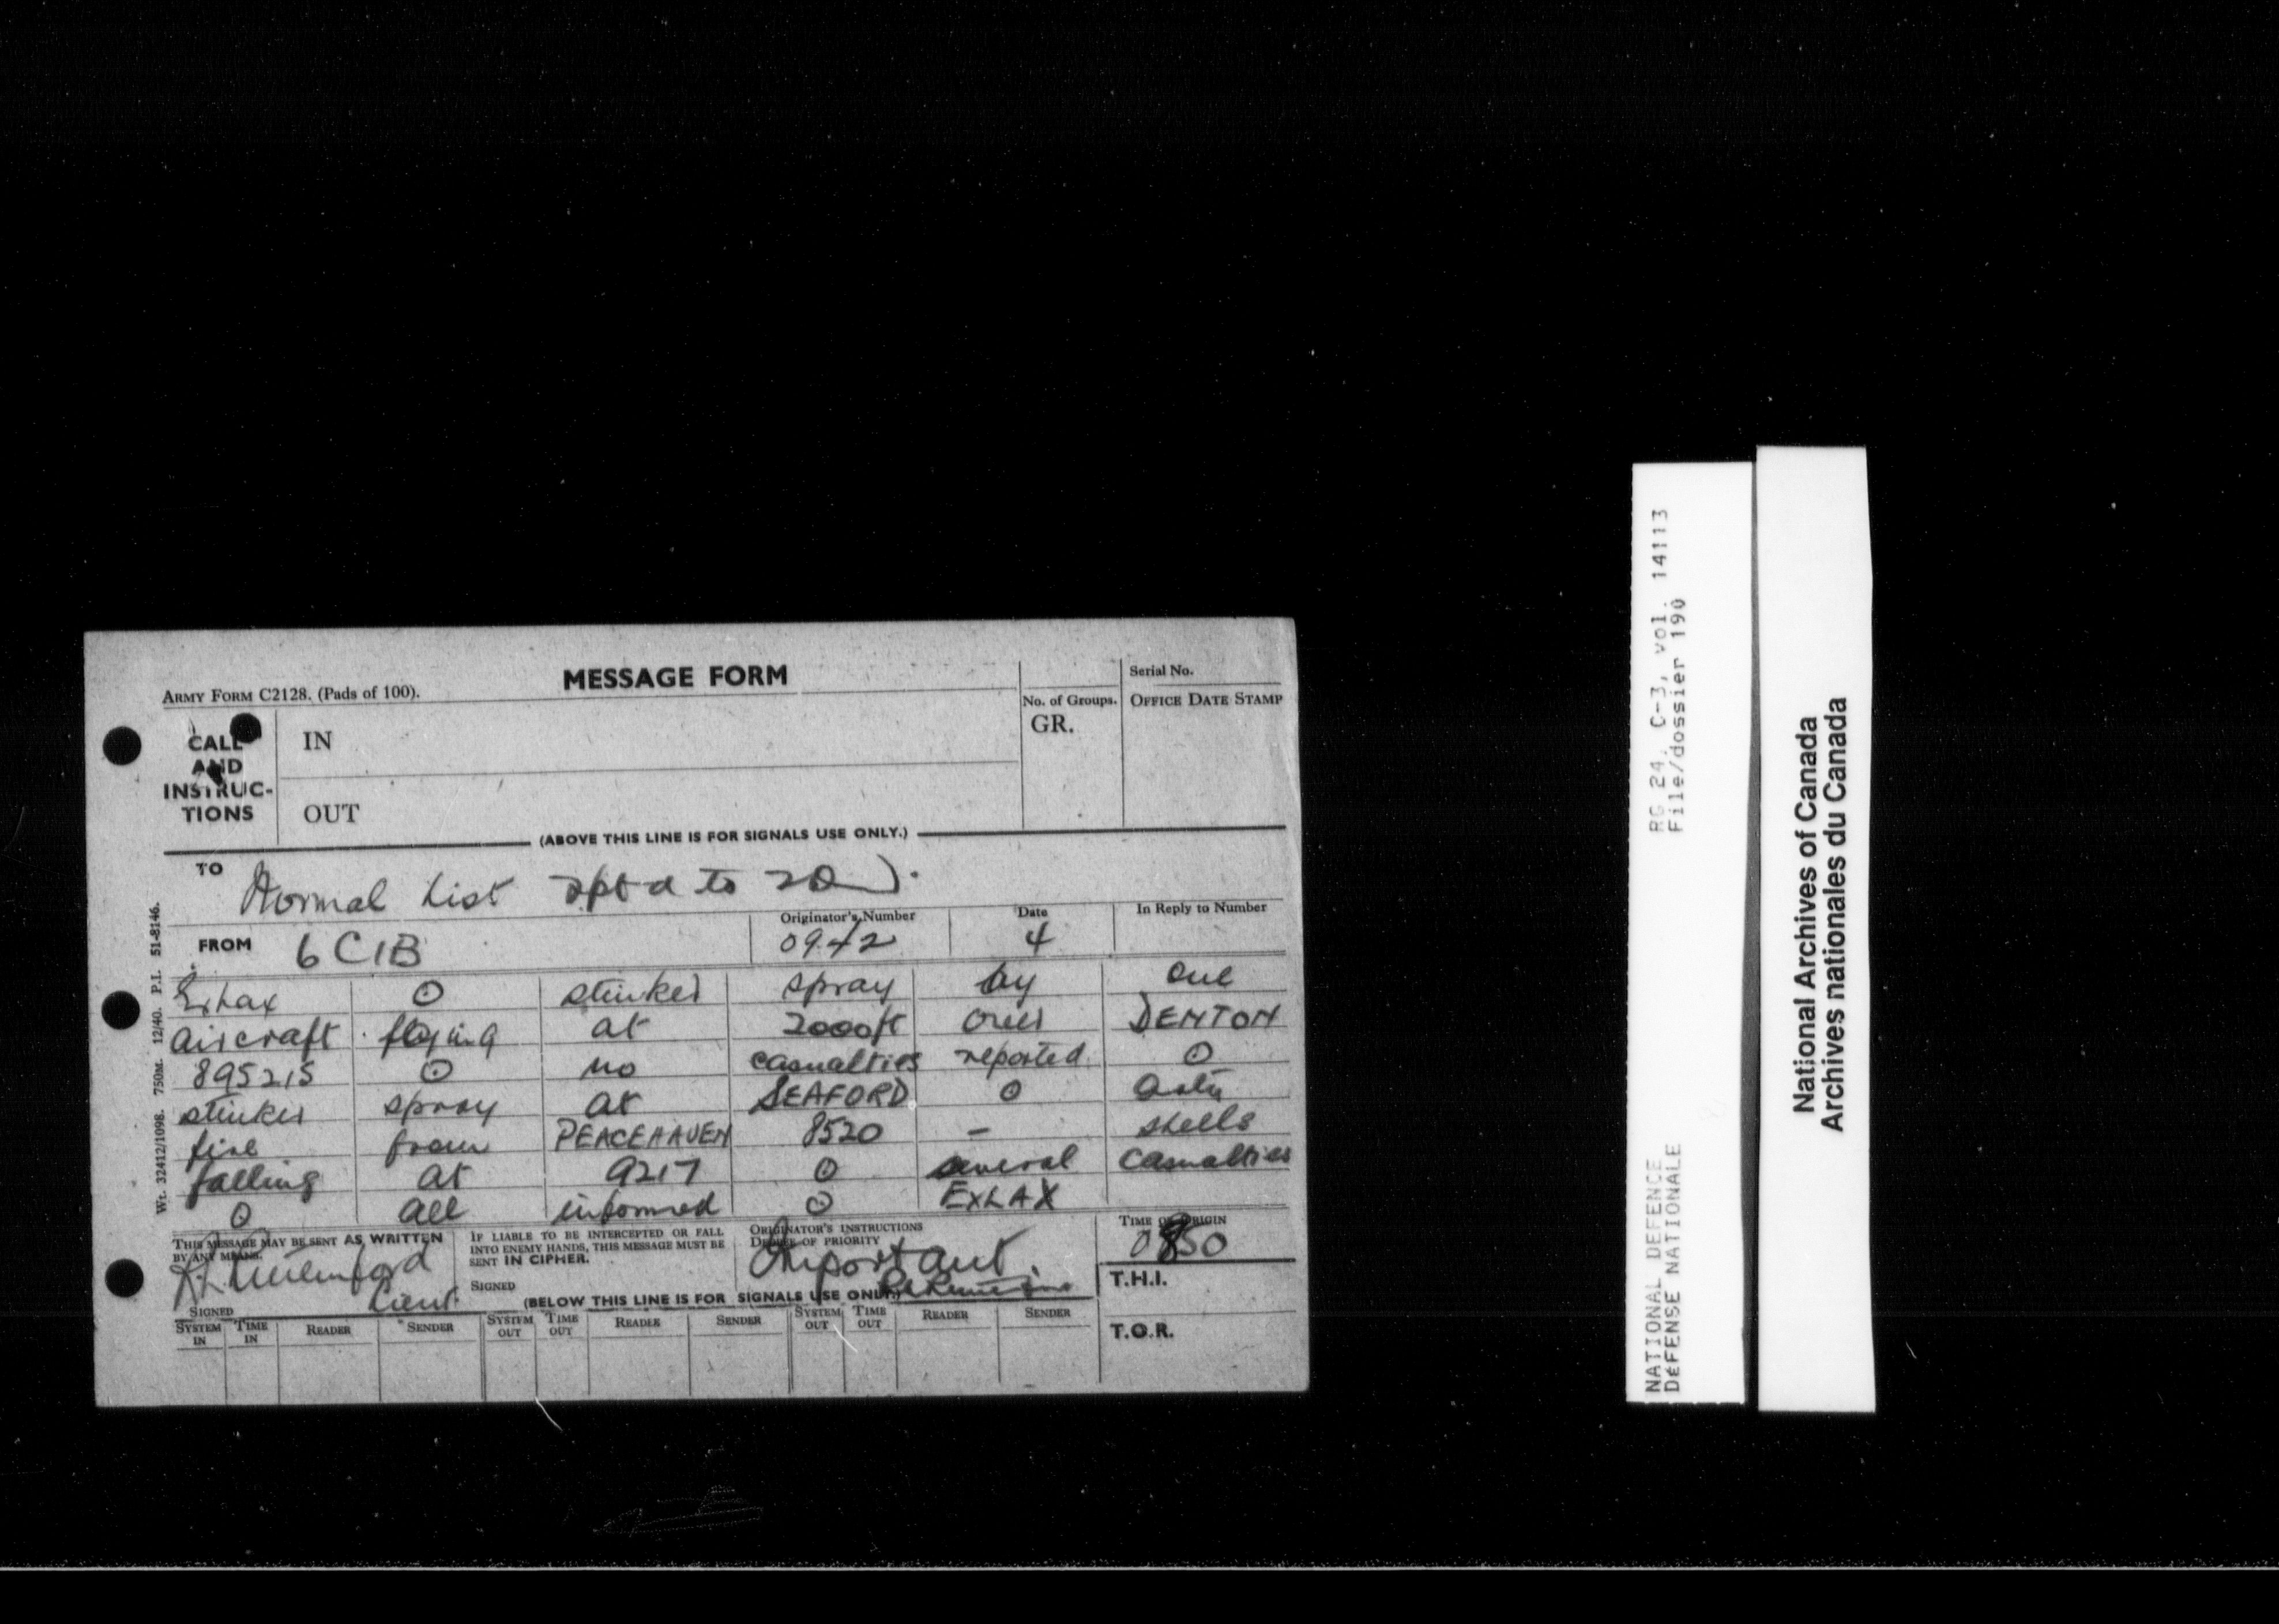 MESSAGE FORM
Serial No.
ARMY FORM C2128. (Pads of 100).
No. of Groups. OFFICE DATE STAMP
CALL AND INSTRUC- TIONS
IN
GR.
OUT
(ABOVE THIS LINE IS FOR SIGNALS USE ONLY.)
TO Normal List rptd to 2D
Originator's Number Date In Reply to Number
FROM 6 CIB 0942 4
Exlax ⊙ stinker spray by one
aircraft flying at 2000ft over DENTON
895215 ⊙ no casualties reported ⊙
stinker spray at SEAFORD ⊙ arty
fire from PEACEHAVEN 8520 - shells
falling at 9217 ⊙ several casualties
⊙ all informed ⊙ EXLAX
THIS MESSAGE MAY BE SENT AS WRITTEN BY ANY MEANS.
Lieut
SIGNED
IF LIABLE TO BE INTERCEPTED OR FALL INTO ENEMY HANDS, THIS MESSAGE MUST BE SENT IN CIPHER.
SIGNED
ORIGINATOR'S INSTRUCTIONS
DEGREE OF PRIORITY
Important.
TIME OF ORIGIN
0850
T.H.I.
(BELOW THIS LINE IS FOR SIGNALS USE ONLY.)
SYSTEM IN TIME IN READER SENDER SYSTEM OUT TIME OUT READER SENDER SYSTEM OUT TIME OUT READER SENDER
T.O.R.
Wt. 32412/1098. 750M. 12/40. P.I. 51-8146.
RG 24, C-3, vol. 14113
File/dossier 190
NATIONAL DEFENCE
DÉFENSE NATIONALE
National Archives of Canada
Archives nationales du Canada